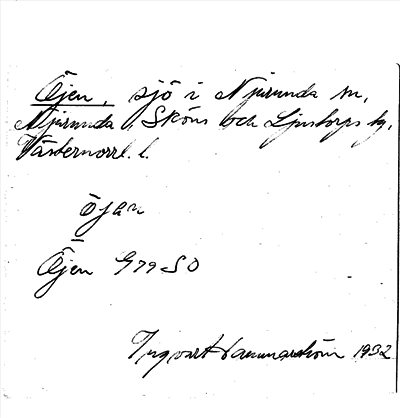 Öjen, sjö i Njurunda sn,
Njurunda, Sköns och Ljustorps tg,
Västernorrl. l.
öjan
Öjen G79SO
Ingvart Hammarström 1932